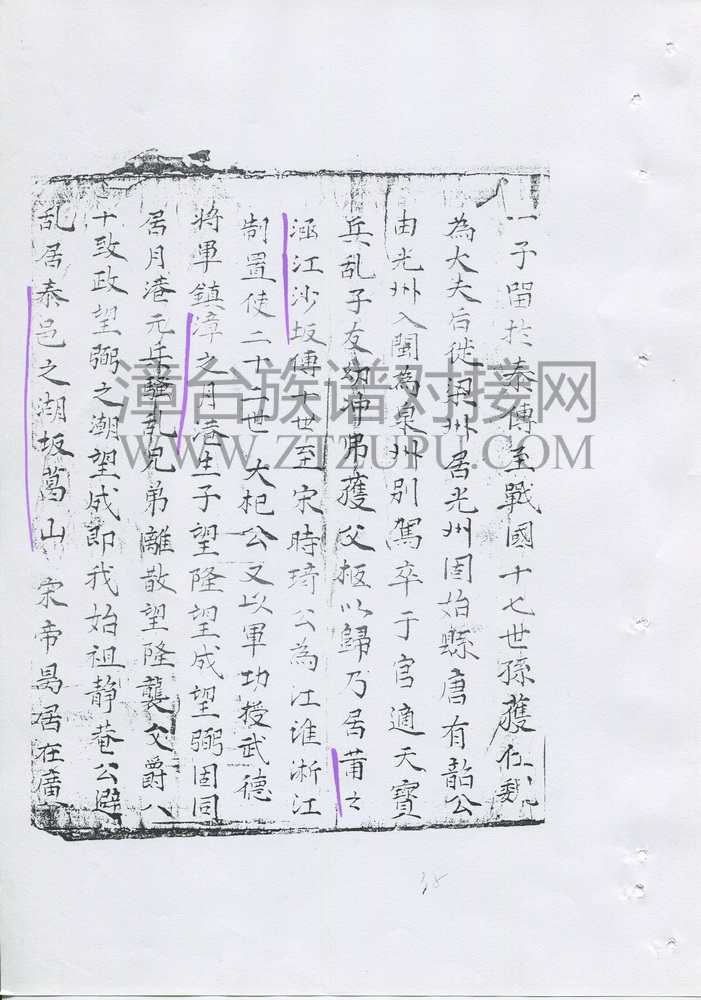 一子留於秦傳至戰國十七世孫獲仕魏
為大夫后從梁州居光州固始縣唐有韶公
由光州入閩為泉州別駕卒于官適天寶
兵乱子友幼冲弗獲父柩以歸乃居莆之
涵江沙坂傳十世至宋時琦公為江淮淅江
制置使二十二世大杞公又以軍功授武德
将軍鎮漳之月港生子望隆望成望弼固同
居月港元兵騷乱兄弟離散望隆襲父爵八
十致政望弼之潮望成即我始祖静菴公避
乱居泰邑之湖坂葛山 宋帝昺居在廣
漳台族谱对接网
WWW.ZTZUPU.COM